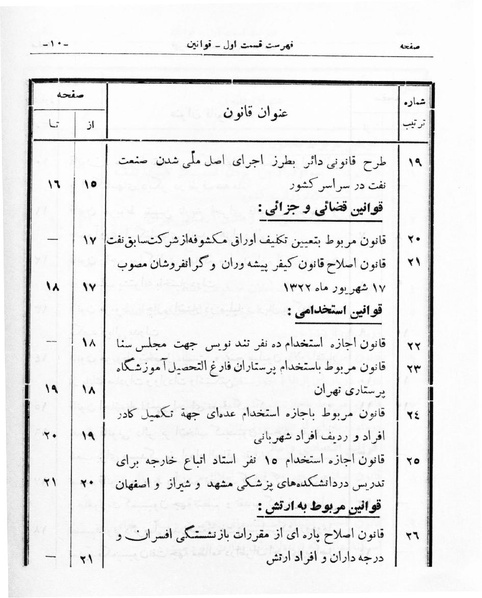 صفحه فهرست قسمت اول - قوانین -۱۰-
شماره ترتیب عنوان قانون صفحه
از تا
۱۹ طرح قانونی دائر بطرز اجرای اصل ملّی شدن صنعت
نفت در سراسر کشور ۱۵ ۱۶
قوانین قضائی و جزائی :
۲۰ قانون مربوط بتعیین تکلیف اوراق مکشوفه از شرکت سابق نفت ۱۷ —
۲۱ قانون اصلاح قانون کیفر پیشه وران و گرانفروشان مصوب
۱۷ شهریور ماه ۱۳۲۲ ۱۷ ۱۸
قوانین استخدامی :
۲۲ قانون اجازه استخدام ده نفر تند نویس جهت مجلس سنا ۱۸ —
۲۳ قانون مربوط باستخدام پرستاران فارغ التحصیل آموزشگاه
پرستاری تهران ۱۸ ۱۹
۲۴ قانون مربوط باجازه استخدام عده‌ای جهة تکمیل کادر
افراد و ردیف افراد شهربانی ۱۹ ۲۰
۲۵ قانون اجازه استخدام ۱۵ نفر استاد اتباع خارجه برای
تدریس در دانشکده‌های پزشکی مشهد و شیراز و اصفهان ۲۰ ۲۱
قوانین مربوط به ارتش :
۲۶ قانون اصلاح پاره ای از مقررات بازنشستگی افسران و
درجه داران و افراد ارتش ۲۱ —